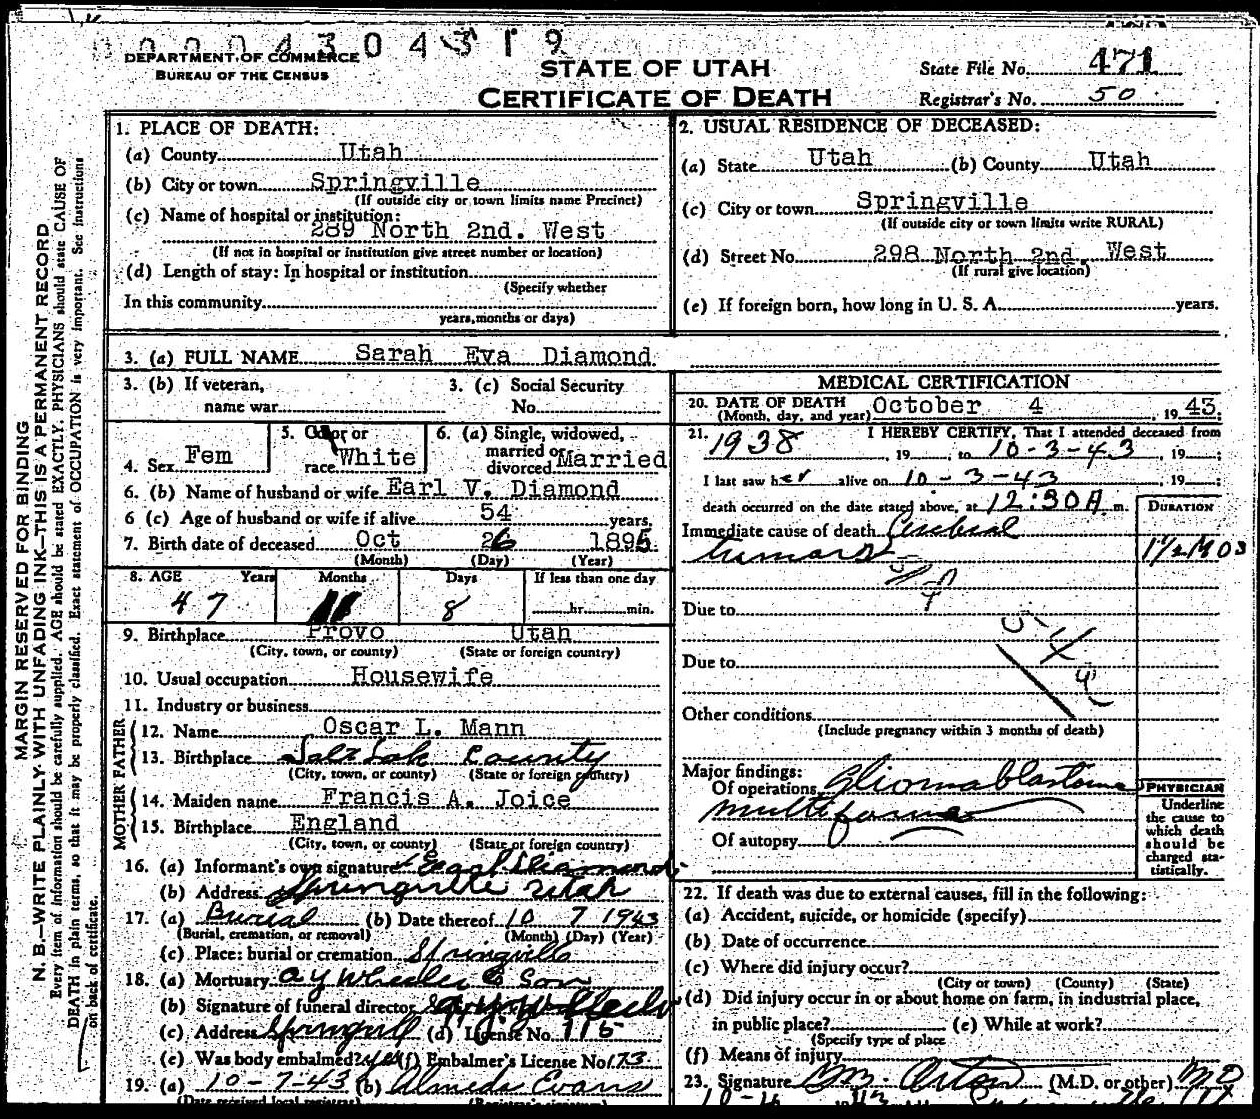 0004304319
DEPARTMENT OF COMMERCE
BUREAU OF THE CENSUS
STATE OF UTAH
CERTIFICATE OF DEATH
State File No. 471
Registrar's No. 50
MARGIN RESERVED FOR BINDING
N. B.—WRITE PLAINLY WITH UNFADING INK—THIS IS A PERMANENT RECORD
Every item of information should be carefully supplied. AGE should be stated EXACTLY. PHYSICIANS should state CAUSE OF
DEATH in plain terms, so that it may be properly classified. Exact statement of OCCUPATION is very important. See instructions
on back of certificate.
1. PLACE OF DEATH:
(a) County Utah
(b) City or town Springville
(If outside city or town limits name Precinct)
(c) Name of hospital or institution:
289 North 2nd. West
(If not in hospital or institution give street number or location)
(d) Length of stay: In hospital or institution
(Specify whether
In this community
years, months or days)
2. USUAL RESIDENCE OF DECEASED:
(a) State Utah (b) County Utah
(c) City or town Springville
(If outside city or town limits write RURAL)
(d) Street No. 298 North 2nd. West
(If rural give location)
(e) If foreign born, how long in U. S. A. years.
3. (a) FULL NAME Sarah Eva Diamond
3. (b) If veteran, 3. (c) Social Security
name war No.
4. Sex Fem 5. Color or race White 6. (a) Single, widowed, married or divorced Married
6. (b) Name of husband or wife Earl V. Diamond
6 (c) Age of husband or wife if alive 54 years.
7. Birth date of deceased Oct 26 1895
(Month) (Day) (Year)
8. AGE Years Months Days If less than one day
47 11 8 hr. min.
9. Birthplace Provo Utah
(City, town, or county) (State or foreign country)
10. Usual occupation Housewife
11. Industry or business
FATHER
12. Name Oscar L. Mann
13. Birthplace Salt Lake County
(City, town, or county) (State or foreign country)
MOTHER
14. Maiden name Francis A. Joice
15. Birthplace England
(City, town, or county) (State or foreign country)
16. (a) Informant's own signature Earl Diamond
(b) Address Springville Utah
17. (a) Burial (b) Date thereof 10 7 1943
(Burial, cremation, or removal) (Month) (Day) (Year)
(c) Place: burial or cremation Springville
18. (a) Mortuary A Y Wheeler & Son
(b) Signature of funeral director A. Y. Wheeler
(c) Address Springvill (d) License No. 115
(e) Was body embalmed? yes (f) Embalmer's License No. 173
19. (a) 10-7-43 (b) Almeda Evans
(Date received local registrar) (Registrar's signature)
MEDICAL CERTIFICATION
20. DATE OF DEATH
(Month, day, and year) October 4, 1943.
21. I HEREBY CERTIFY, That I attended deceased from
1938, 19 , to 10-3-43, 19 ;
I last saw her alive on 10-3-43 19 ;
death occurred on the date stated above, at 12:30 A m.
DURATION
Immediate cause of death Cerebral
1 1/2 Mos
Due to
54
Due to
Other conditions
(Include pregnancy within 3 months of death)
Major findings:
Of operations Gliomablastoma
multiforme
Of autopsy
PHYSICIAN
Underline
the cause to
which death
should be
charged sta-
tistically.
22. If death was due to external causes, fill in the following:
(a) Accident, suicide, or homicide (specify)
(b) Date of occurrence
(c) Where did injury occur?
(City or town) (County) (State)
(d) Did injury occur in or about home on farm, in industrial place,
in public place? (e) While at work?
(Specify type of place
(f) Means of injury
23. Signature (M.D. or other) MD